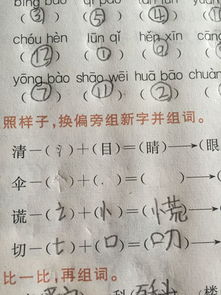 (③) (⑤) (④) (
chóu hèn lūn qǐ hěn xīn cāng
(⑫) ( ) (②) (
yōng bào shāo wēi huā bāo chuàn
(⑦) (⑪) (②) (
照样子，换偏旁组新字并组词。
清—(氵)+(目)=(睛)→(眼
伞—( )+( )=( )→(
谎—(讠)+(忄)=(慌)→(
切—(七)+(口)=(叨)→(
比一比，再组词。